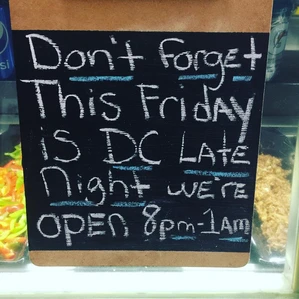 Don't forget
This Friday
is DC Late
Night we're
open 8pm-1am